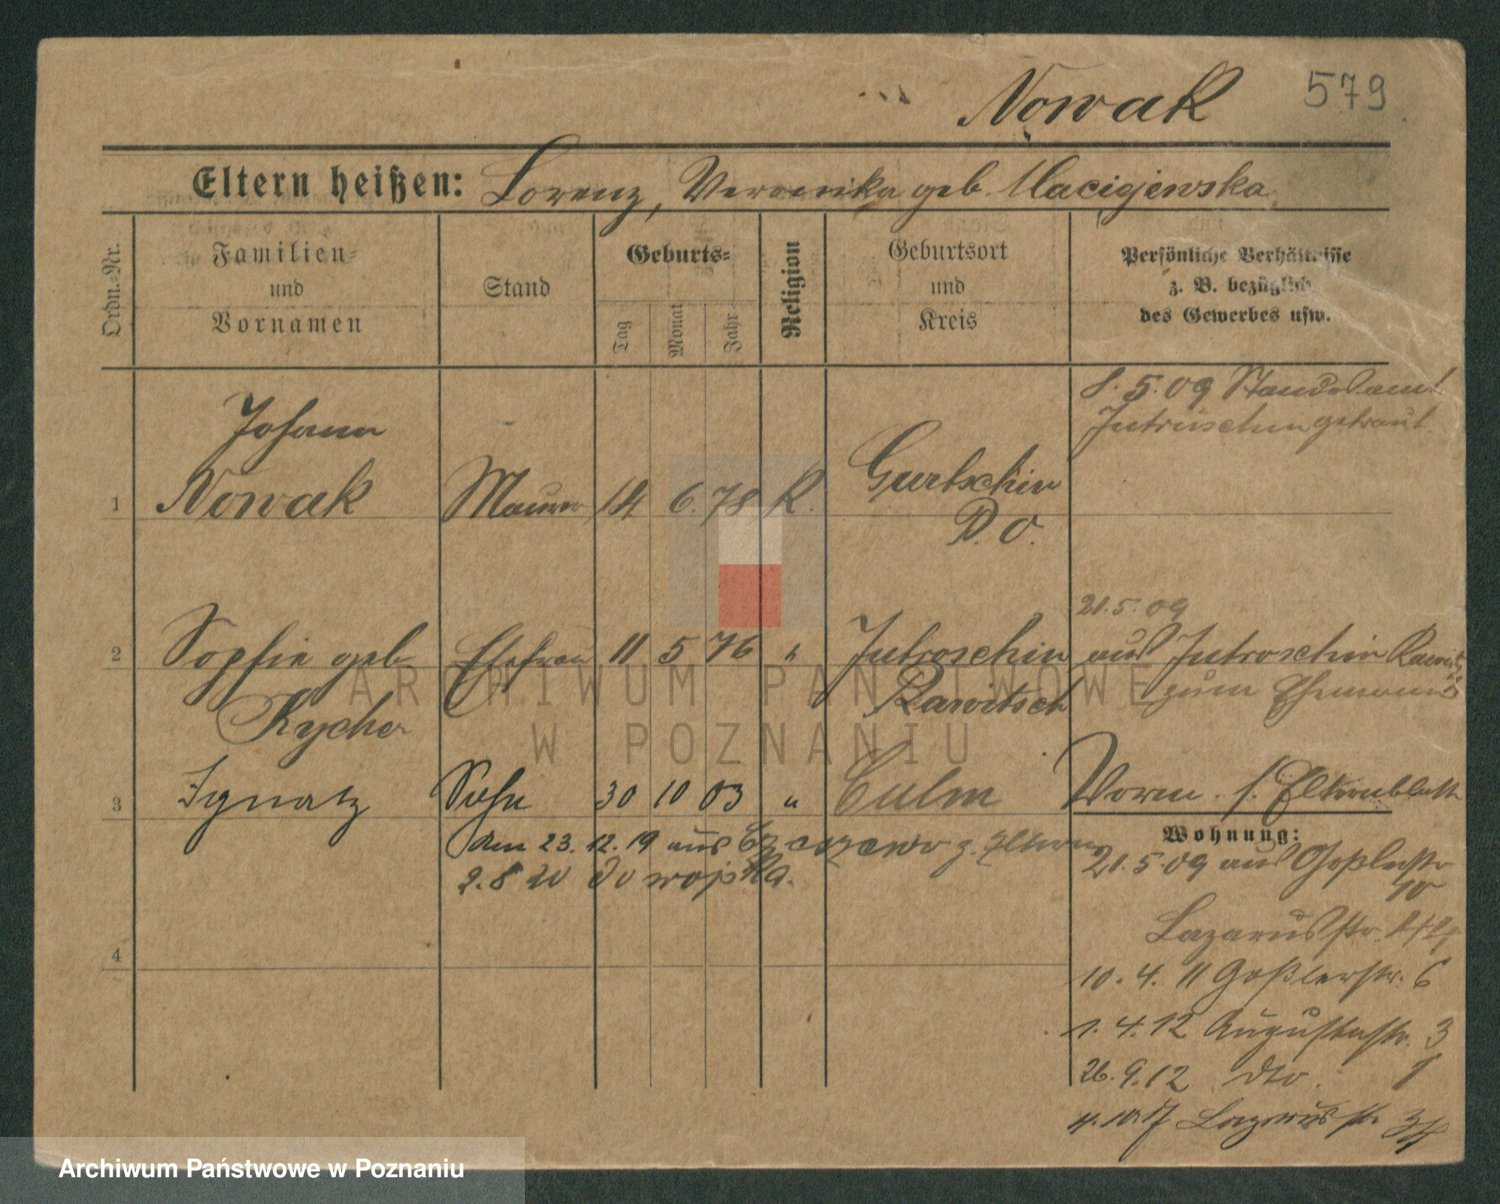 Nowak 579
Eltern heißen: Lorenz, Veronika geb. Macigjewska
Ordn.-Nr.
Familien-
und
Vornamen
Stand
Geburts-
Tag
Monat
Jahr
Religion
Geburtsort
und
Kreis
Persönliche Verhältnisse
z. B. bezüglich
des Gewerbes usw.
8. 5. 09 Standesamt
Jutroschin getraut
Johann
1 Nowak Maurer 14 6. 78 K. Gurtschin
P. O.
21. 5. 09
2 Sophie geb. Ehefrau 11 5 76 " Jutroschin aus Jutroschin
Rycher Rawitsch zum Ehemann
3 Ignatz Sohn 30 10 03 " Culm Vorm. s. Elternblatt
Wohnung:
Am 23. 12. 19 aus z. Eltern
2. 8 20 do wojska.
21. 5. 09 aus Goßlerstr
10
4 Lazarusstr.
10. 4. 11 Goßlerstr. 6
1. 4. 12 Augustastr. 3
26. 9. 12 dto.
10. 17 Lazarusstr
ARCHIWUM PAŃSTWOWE
W POZNANIU
Archiwum Państwowe w Poznaniu